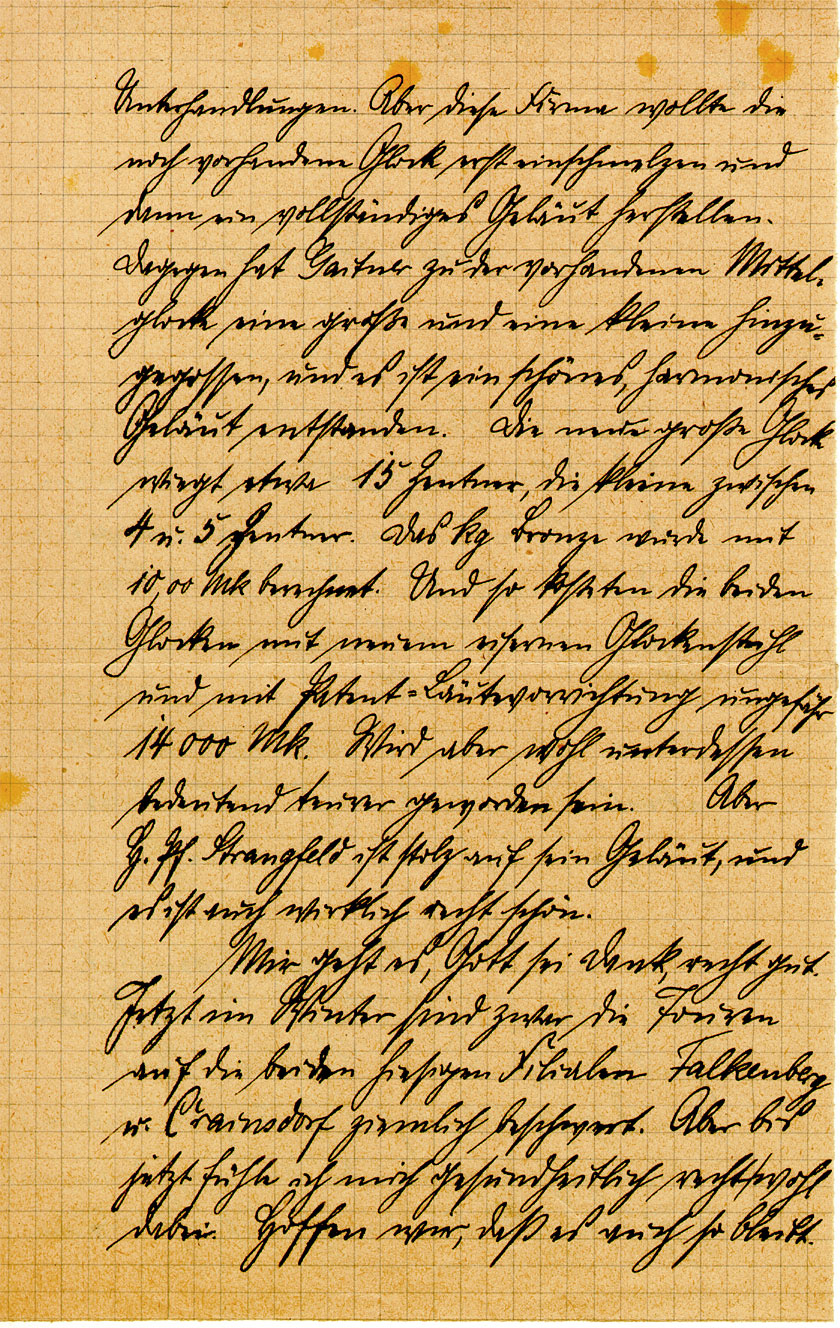 Unterhandlungen. Aber diese Firma wollte die
noch vorhandene Glocke erst einschmelzen und
dann ein vollständiges Geläut herstellen.
Dagegen hat Geitner zu der vorhandenen Mittel-
glocke eine große und eine kleine hinzu-
gegossen, und es ist ein schönes, harmonisches
Geläut entstanden. Die neue große Glocke
wiegt etwa 15 Zentner, die kleine zwischen
4 u. 5 Zentner. Das kg Bronze wurde mit
10,00 Mk berechnet. Und so kosteten die beiden
Glocken mit neuem eisernen Glockenstuhl
und mit Patent-Läutevorrichtung ungefähr
14 000 Mk. Wird aber wohl unterdessen
bedeutend teurer geworden sein. Aber
H. Pf. Strangfeld ist stolz auf sein Geläut, und
es ist auch wirklich recht schön.
Mir geht es, Gott sei Dank, recht gut.
Jetzt im Winter sind zwar die Touren
auf die beiden hiesigen Filialen Falkenberg
u. Crainsdorf ziemlich beschwert. Aber bis
jetzt fühle ich mich gesundheitlich recht wohl
dabei. Hoffen wir, daß es auch so bleibt.